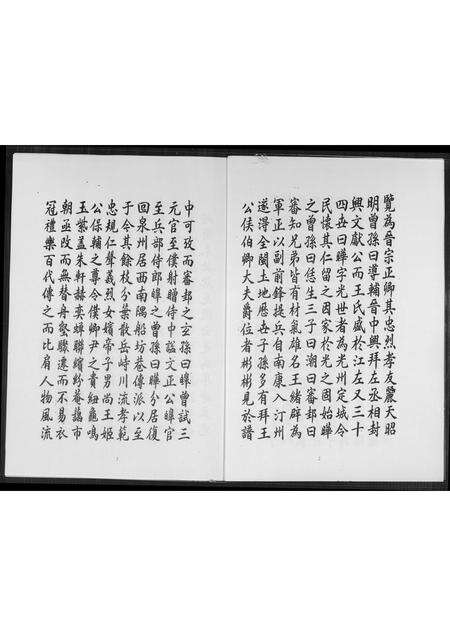 覽為晉宗正卿其忠烈孝友麗天昭
明曾孫曰導輔晉中興拜左丞相封
興文獻公而王氏盛於江左又三十
四世曰曄字光世者為光州定城令
民懷其仁留之因家於光之固始曄
之曾孫曰恁生三子曰潮曰審邽曰
審知兄弟皆有材氣雄名王緒辟為
軍正以副前鋒提兵自南康入汀州
遂得全閩土地歷世子孫多有拜王
公侯伯卿大夫爵位者彬彬見於譜
中可攷而審邽之玄孫曰曄曾試三
元官至僕射贈侍中諡文正公曄官
至兵部侍郎曄之曾孫曰曄分居復
回泉州居西南隅船坊巷傳派以至
于今其餘枝分葉散岳峙川流孝範
忠規仁聲義烈女嬪帝子男尚王姬
公保輔之尊令僕卿尹之貴紐龜鳴
玉紫蓋朱軒赫奕蟬聯繽紛卷藹市
朝亟改而無替舟壑驟遷而不易衣
冠禮樂百代傳之而比肩人物風流